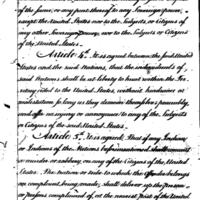 of the same, or any part thereof to any Foreign power,
except the United States nor to the Subjects or Citizens of
any other Foreign power, nor to the Subjects or Citizens
of the United States.
Article 4th. It is agreed between the said United
States and the said Nations, that the individuals of
said Nations shall be at liberty to hunt within the Ter-
ritory ceded to the United States, without hindrance or
molestation so long as they demean themselves peaceably
and offer no injury or annoyance to any of the Subjects
or Citizens of the said United States.
Article 5th. It is agreed that if any Indian
or Indians of the Nations before mentioned shall commit
a murder or robbery on any of the Citizens of the United
States. The Nation or tribe to which the Offender belongs
on complaint being made, shall deliver up the person
or persons complained of, at the nearest Post of the United